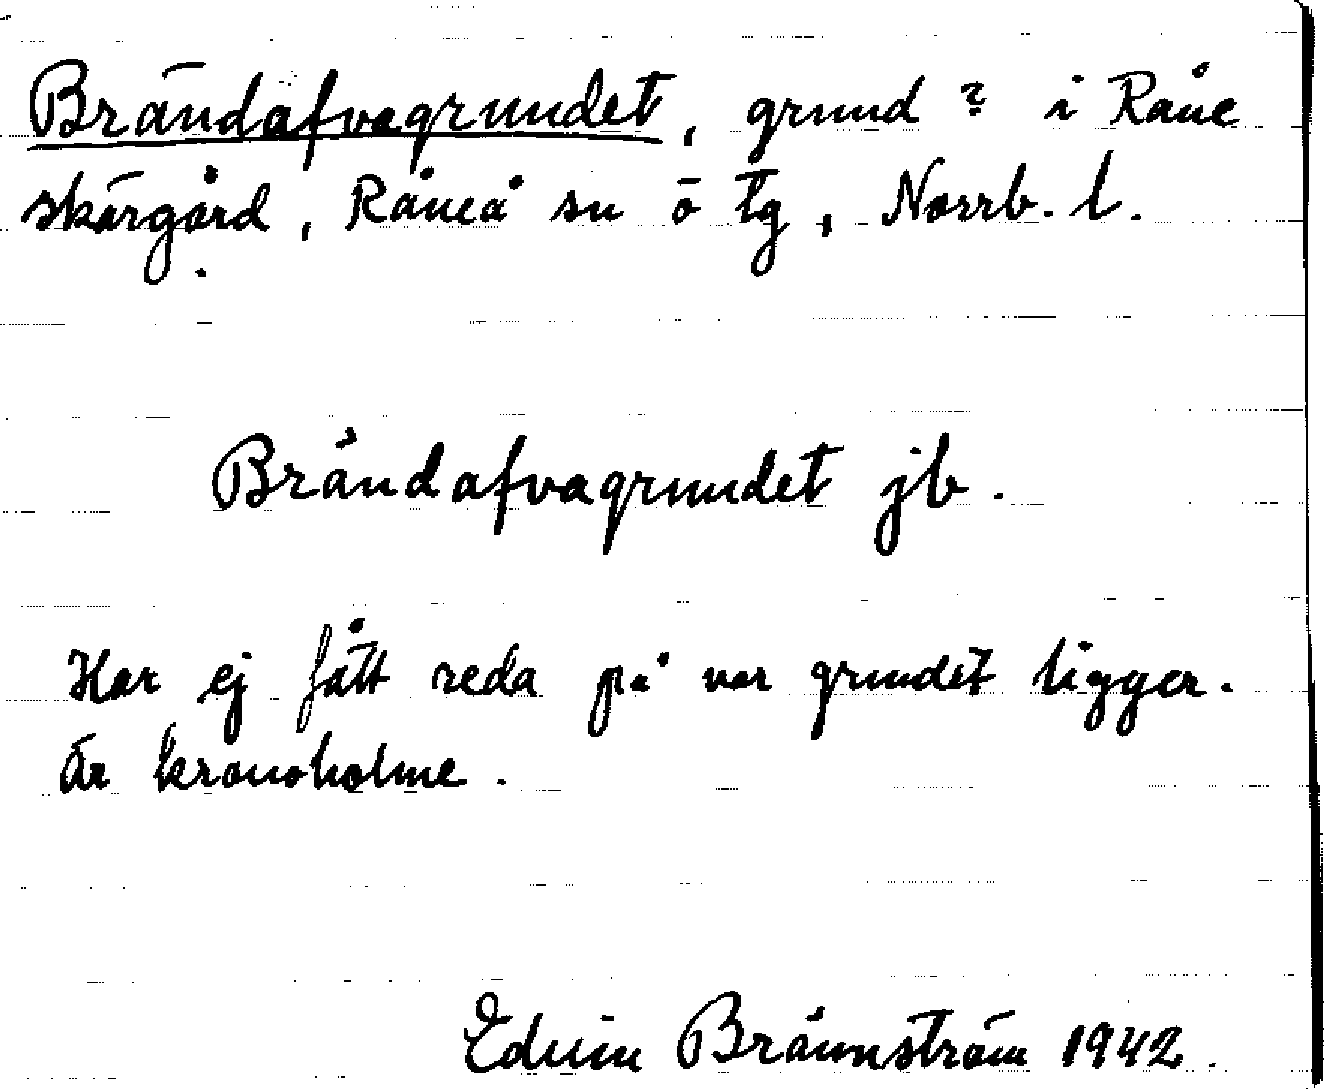 Brändafvagrundet, grund? i Råne
skärgård, Råneå sn ö tg, Norrb. l.
Brändafvagrundet jb.
Har ej fått reda på var grundet ligger.
Är kronoholme.
Edvin Brännström 1942.